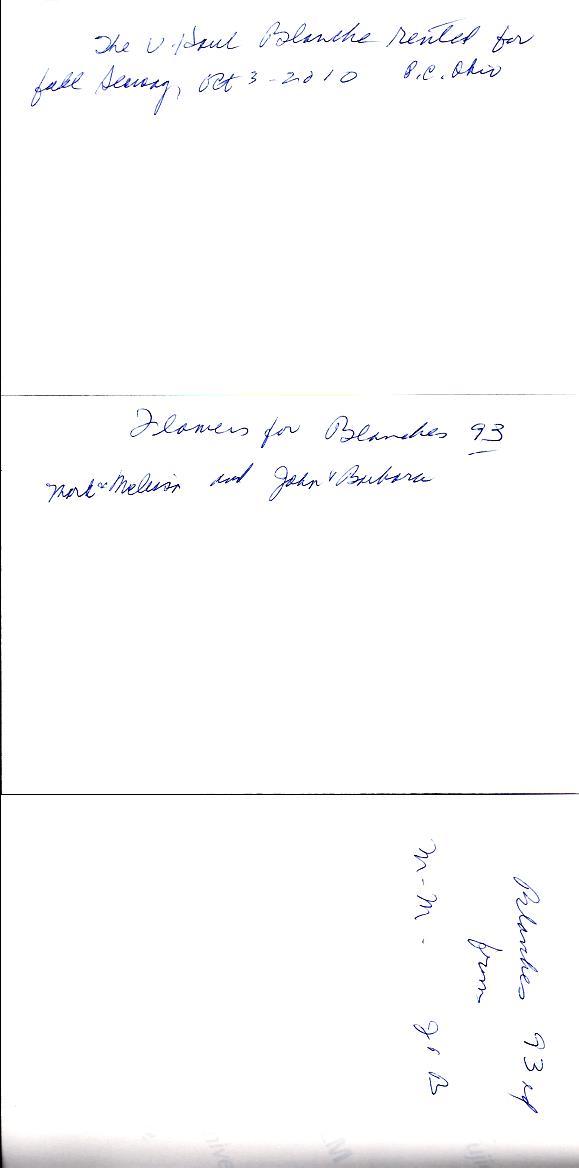 The U-Haul Blanche rented for
fall Sewing, Oct 3-2010 P.C. Ohio
Flowers for Blanches 93
Mark & Melissa and John & Barbara
Blanches 93rd
from
M-M- J & B